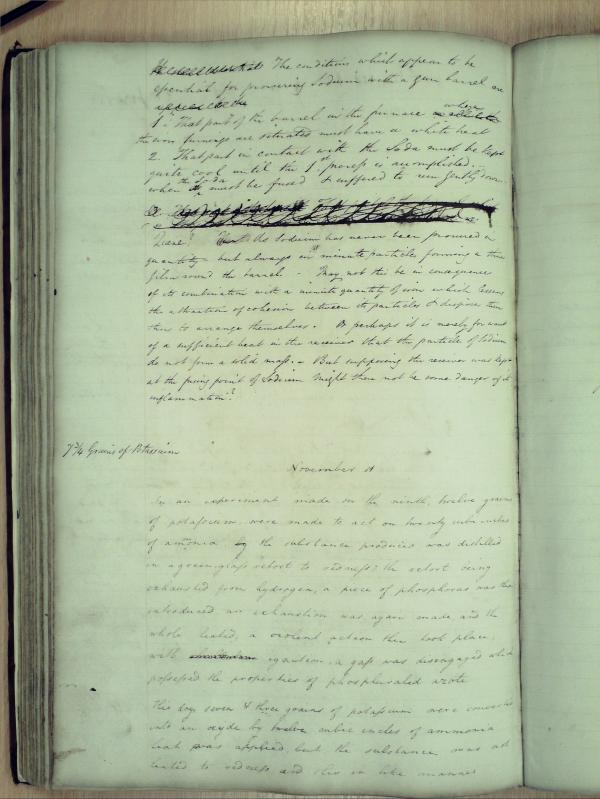 The conditions which appear to be
essential for procuring Sodium with a gun barrel are
1st. That part of the barrel in the furnace where
the iron turnings are situated must have a white heat
2. That part in contact with the Soda must be kept
quite cool until the 1st process is accomplished.
when the Soda must be fused & suffered to run gently down
the Sodium has never been procured in
quantity but always in minute particles forming a thin
film round the barrel - May not this be in consequence
of its combination with a minute quantity of iron which lessens
the attraction of cohesion between its particles & disposes them
thus to arrange themselves. Or perhaps it is merely for want
of a sufficient heat in the receiver that the particles of Sodium
do not form a solid mass. - But supposing the receiver was kept
at the fusing point of Sodium might there not be some danger of its
inflammation?
7 3/4 Grains of Potassium
November 11
In an experiment made on the ninth, twelve grains
of potassium, were made to act on twenty cubic inches
of ammonia, the substance produced was distilled
in a green glass retort to redness: the retort being
exhausted from hydrogen, a piece of phosphorus was then
introduced an exhaustion was again made and the
whole heated, a violent action then took place,
with ignition, a gass was disengaged which
possessed the properties of phosphurated azote
This day seven & three grains of potassium were converted
into an oxyde by twelve cubic inches of ammonia
heat was applied, but the substance was not
heated to redness and this in like manner